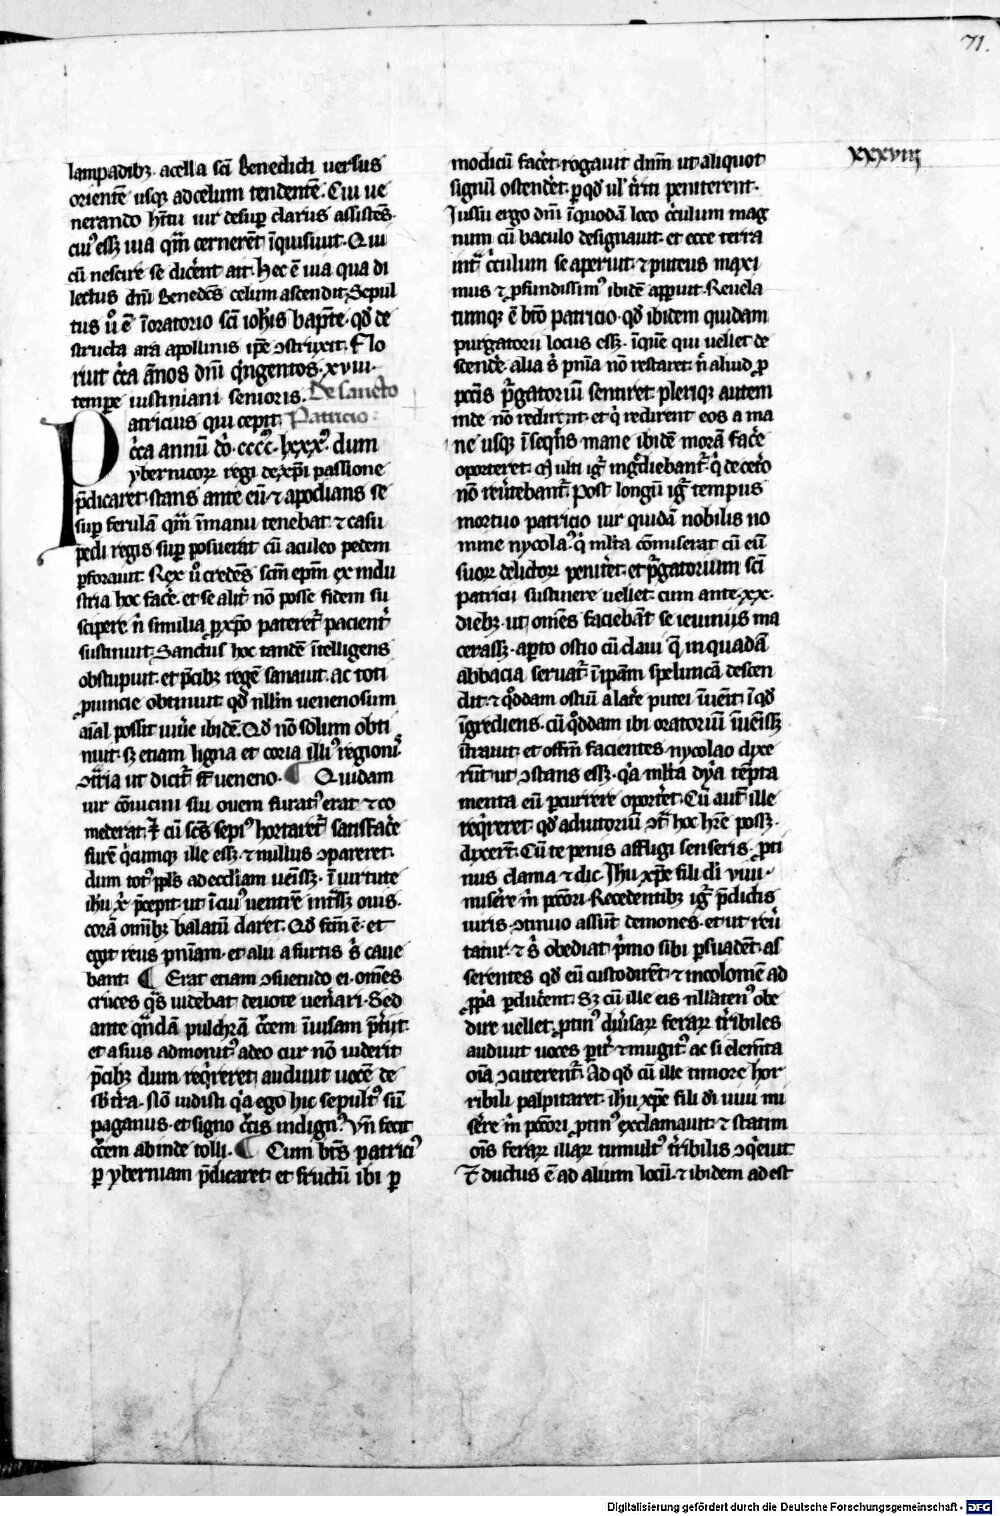 71.
xxxviij
lampadibꝫ. acella sc̄i Benedicti uersus
orientē usqꝫ adcelum tendentē. Cui ue
nerando hītu uir desuꝑ clarus assistēs.
cui᷒ essꝫ uia q̄m cernerēt īquisiuit. Qui
cū nescire se dicērent ait. Hec ē uia qua di
lectus dn̄i Benedcs̄ celum ascendit. Sepul
tus u̅ ē īoratorio sc̄i ioh̄is bapt̄e. qd̄ de
structa ara apollinis ip̄e ꝯstruxit. Flo
ruit c̄ca ān̄os dn̄i qͥngentos. xviii.
tempe iustiniani senioris. De sancto
Patricio
Patricius qui cepit
c̄ca annū do. cccc. lxxx. dum
ybernicoꝝ regi de xp̄i passione
p̄dicaret. stans ante eū ⁊ apodians se
suꝑ ferulā q̄m īmanu tenebat. ⁊ casu
pedi regis suꝑ posuerat cū aculeo pedem
ꝑforauit. Rex u̅ credēs scm̄ epm̄ ex indu
stria hoc facēre. et se alit᷑ nō posse fidem su
scipere n̄ similia ꝓ xp̄o pateret᷑ pacient᷑
sustinuit. Sanctus hoc tandē ītelligens
obstupuit. et p̄cibꝫ regē sanauit. ac toti
ꝓuincie obtinuit qd̄ nllm̄ uenenosum
aīal possit uiuē ibidē. Qd̄ nō solum obti
nuit. sꝫ etiam ligna et coria illi᷒ regioni᷒
ꝯtria ut dicit᷑ st̄ ueneno. ¶ Quidam
uir cōuicini sui ouem furat᷒ erat ⁊ co
mederat. cū scs̄ sepi᷒ hortaret᷑ satisfacē
furē qͥcumqꝫ ille essꝫ. ⁊ nullus ꝯpareret.
dum tot᷒ ppl̄s ad eccliam uēissꝫ. ī uirtute
ih̄u x̄ p̄cepit ut īcui᷒ uentrē intͣssꝫ ouis.
corā omībꝫ balatū daret. Qd̄ fcm̄ ē. et
egit reus pn̄iam. et alii a furtis s̄ caue
bant. ¶ Erat etiam ꝯsuetudo ei. omēs
cruces qͣs uidebat deuote uen̄ari. Sed
ante qͣndā pulchrā c̄cem īuisam p̄tijt.
et a suis admonit᷒ adeo cur nō uiderit
p̄cibꝫ dum req̄reret. audiuit uocē de
sb̄ t̄ra. Nō uidisti qͥa ego hic sepult᷒ sū
paganus. et signo c̄cis indign᷒ Vn̄ fecit
c̄cem ab inde tolli. ¶ Cum bt̄s patrici᷒
ꝑ yberniam p̄dicaret. et fructū ibi ꝑ
modicū facēt. rogauit dnm̄ ut aliquot
signū ostendēt. ꝑ qd̄ ul᷑ t̄riti peniterent.
Jussu ergo dn̄i īquodā loco c̄culum mag
num cū baculo designauit. et ecce terra
intͣ c̄culum se aperuit. ⁊ puteus maxi
mus ⁊ ꝓfundissim᷒ ibidē apparuit. Reuela
tumqꝫ ē bt̄o patricio. qd̄ ibidem quidam
purgatorii locus essꝫ. īquē qui uellet de
scendē. alia s̄ pn̄ia nō restaret. n̄ aliud ꝓ
pcc̄is p̄gatoriū sentiret. pleriqꝫ autem
inde nō redirent. et qͥ redirent eos a ma
ne usqꝫ ī seqn̄s mane ibidē morā facē
oporteret. Multi ig᷑ ingͣdiebant᷑ qͥ de cet̄o
nō reu̅tebant᷑. Post longū ig᷑ tempus
mortuo patricio uir quidā nobilis no
mine nycola᷒. qͥ ml̄ta cōmiserat cū eū
suoꝝ delictoꝝ penitēt. et p̄gatorium sc̄i
patricii sustinere uellet. cum ante. xx.
diebꝫ. ut omēs faciebāt se ieiuniis ma
cerassꝫ. aꝑto ostio cū claui q̄ in quadā
abbacia seruat᷑. ī ipām speluncā descen
dit. ⁊ qͦddam ostiū a latē putei īuēit. īqd̄
īgrediens. cū qͦddam ibi oratoriū īuēissꝫ
ītrauit. et offm̄ facientes nycolao dyxe
rūt ut ꝯstans essꝫ. qͥa ml̄ta dya tēpta
menta eū ꝑcurrere oportēt. Cū aut̄ ille
reqͥreret. qd̄ adiutoriū ꝯt᷑ hoc hr̄e possꝫ.
dyxert̄. Cū te penis affligi senseris. ꝓti
nus clama ⁊ dic. Jh̄u xp̄e fili di̅ uiui.
miserē m̄ pcc̄ori. Recedentibꝫ ig᷑ p̄dictis
uiris. ꝯtinuo assūt demones. et ut reu̅
tatur ⁊ s̄ obediat. pͥmo sibi ꝑsuadēt. as
serentes qd̄ eū custodirēt ⁊ incolomē ad
ꝓpͥa ꝑducēt. Sꝫ cū ille eis nllaten᷒ obe
dire uellet. ꝓtin᷒ diu̅saꝝ feraꝝ t̄ribiles
audiuit uoces. pit̄ ⁊ mugit᷒ ac si elem̄ta
oīa ꝯcuterent᷑. Ad qd̄ cū ille timore hor
ribili palpitaret. ih̄u xp̄e fili di̅ uiui mi
serē m̄ pcc̄ori ꝓtin᷒ exclamauit. ⁊ statim
oīs feraꝝ illaꝝ tumult᷒ t̄ribilis ꝯqͥeuit
⁊ ductus ē ad alium locū. ⁊ ibidem ad est
Digitalisierung gefördert durch die Deutsche Forschungsgemeinschaft - DFG